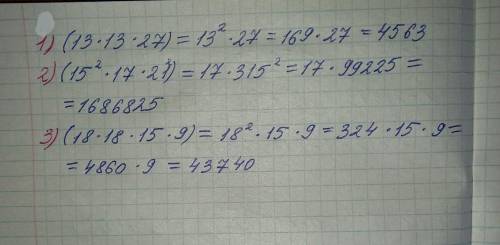 1) (13·13·27) = 13²·27 = 169·27 = 4563
2) (15²·17·21²) = 17·315² = 17·99225 =
= 1686825
3) (18·18·15·9) = 18²·15·9 = 324·15·9 =
= 4860·9 = 43740